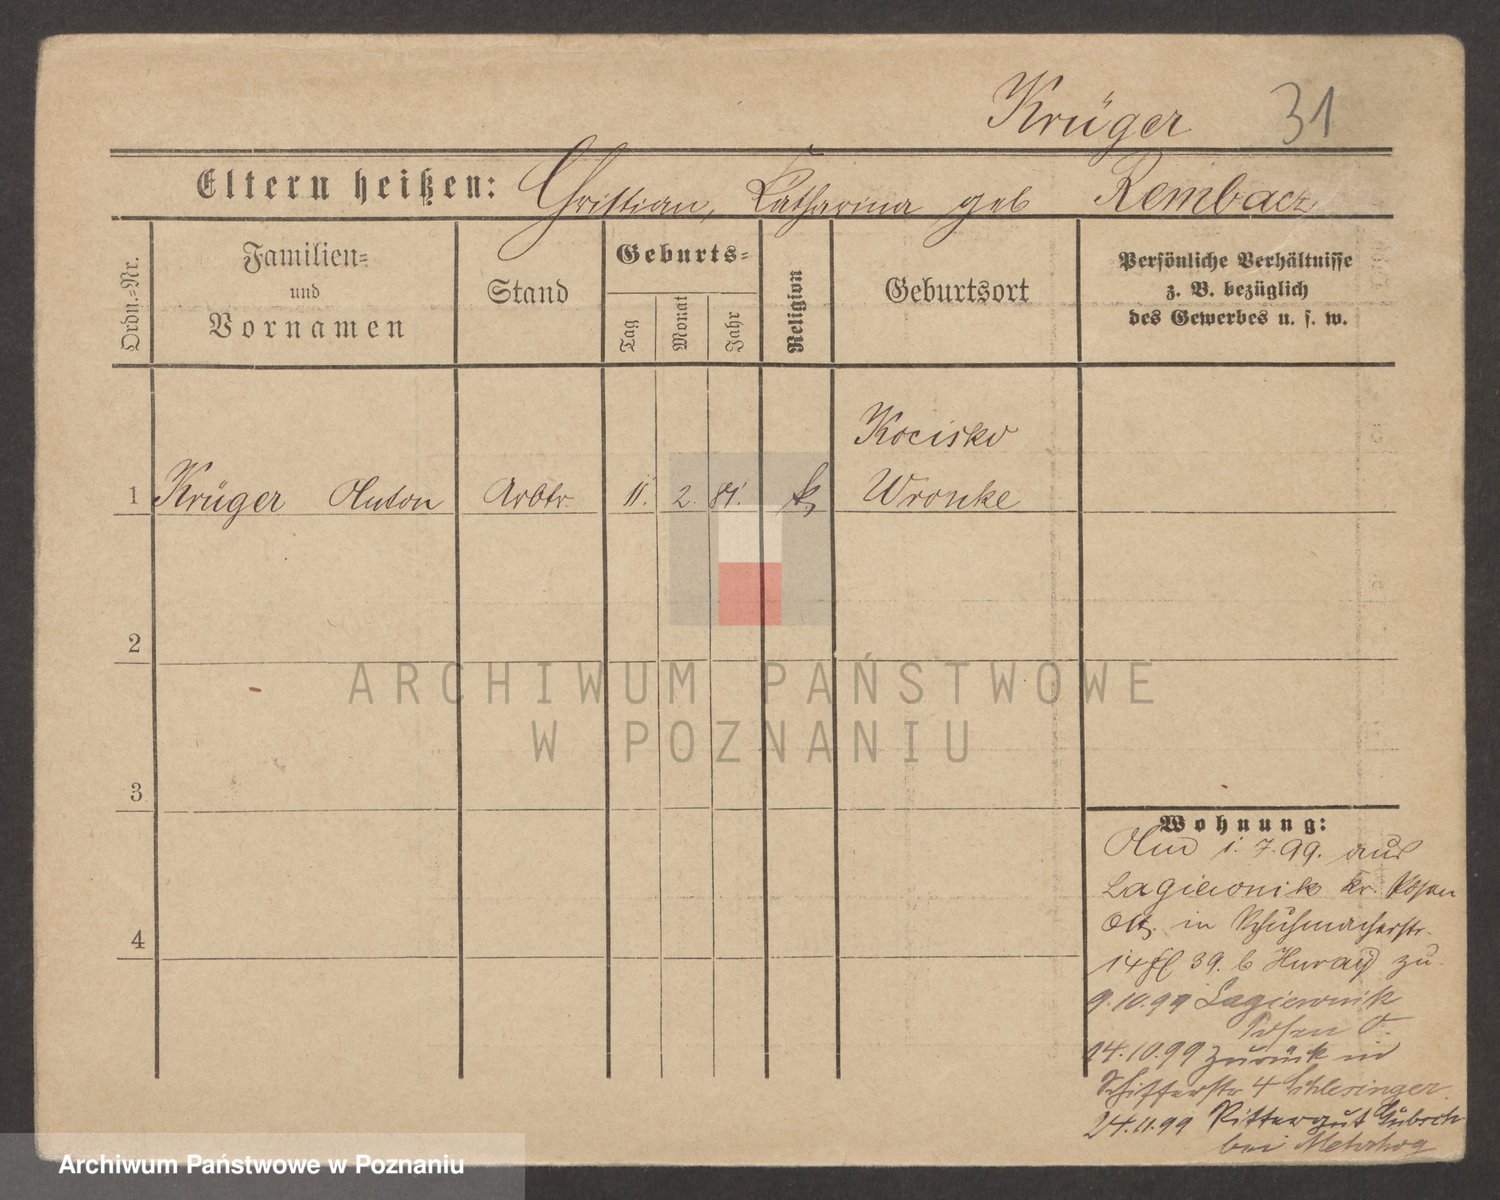 Krüger 31
Eltern heißen: Christian, Katharina geb Rembacz
Ordn.-Nr.
Familien-
und
Vornamen
Stand
Geburts-
Tag
Monat
Jahr
Religion
Geburtsort
Persönliche Verhältnisse
z. B. bezüglich
des Gewerbes u. s. w.
Kocisko
1 Krüger Anton Arbtr. 11. 2. 81. k Wronke
2
3
4
Wohnung:
1. 7. 99. aus
Lagiewnik Kr. Posen
Ost. in Schuhmacherstr.
14 39. b zu
9.10.99 Lagiewnik
Posen O.
24.10.99 zurück in
Schifferstr 4 Schlesinger
24.11.99 Rittergut
bei
ARCHIWUM PAŃSTWOWE
W POZNANIU
Archiwum Państwowe w Poznaniu